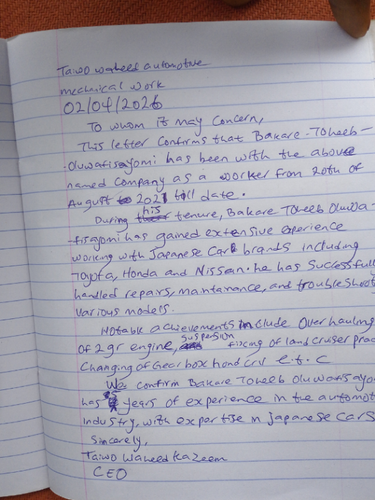 Taiwo waheed automotive
mechanical work
02/04/2026
To whom it may concern,
This letter confirms that Bakare - Toheeb -
- Oluwafisayomi has been with the above
named company as a worker from 20th of
August 2021 till date.
During his tenure, Bakare Toheeb Oluwa-
fisayomi has gained extensive experience
working with Japanese Car brands including
Toyota, Honda and Nissan. he has Successfull
handled repairs, maintanance, and troubleshoot
various models.
Notable achievements include Overhauling
of 2gr engine, suspension fixing of land cruser prad
Changing of Gear box hond crv e.t.c
We confirm Bakare Toheeb Oluwafisayo
has years of experience in the automot
industry, with expertise in Japanese Cars
Sincerely,
Taiwo Waheed Kazeem
CEO